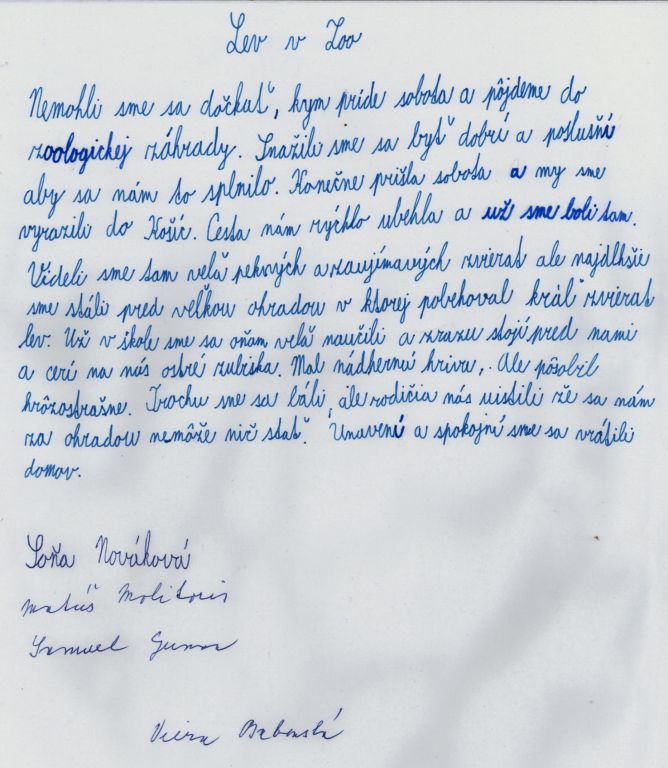 Lev v Zoo
Nemohli sme sa dočkať, kym príde sobota a pôjdeme do
zoologickej záhrady. Snažili sme sa byť dobrí a poslušní
aby sa nám to splnilo. Konečne prišla sobota a my sme
vyrazili do Košíc. Cesta nám rýchlo ubehla a už sme boli tam.
Videli sme tam veľa pekných a zaujímavých zvierat ale najdlhšie
sme stáli pred veľkou ohradou v ktorej pobehoval kráľ zvierat
lev. Už v škole sme sa oňom veľa naučili a zrazu stojí pred nami
a cerí na nás ostré zubiska. Mal nádhernú hrivu,. Ale pôsobil
hrôzostrašne. Trochu sme sa báli, ale rodičia nás uistili že sa nám
za ohradou nemôže nič stať. Unavení a spokojní sme sa vrátili
domov.
Soňa Nováková
Matúš Molitoris
Samuel
Viera